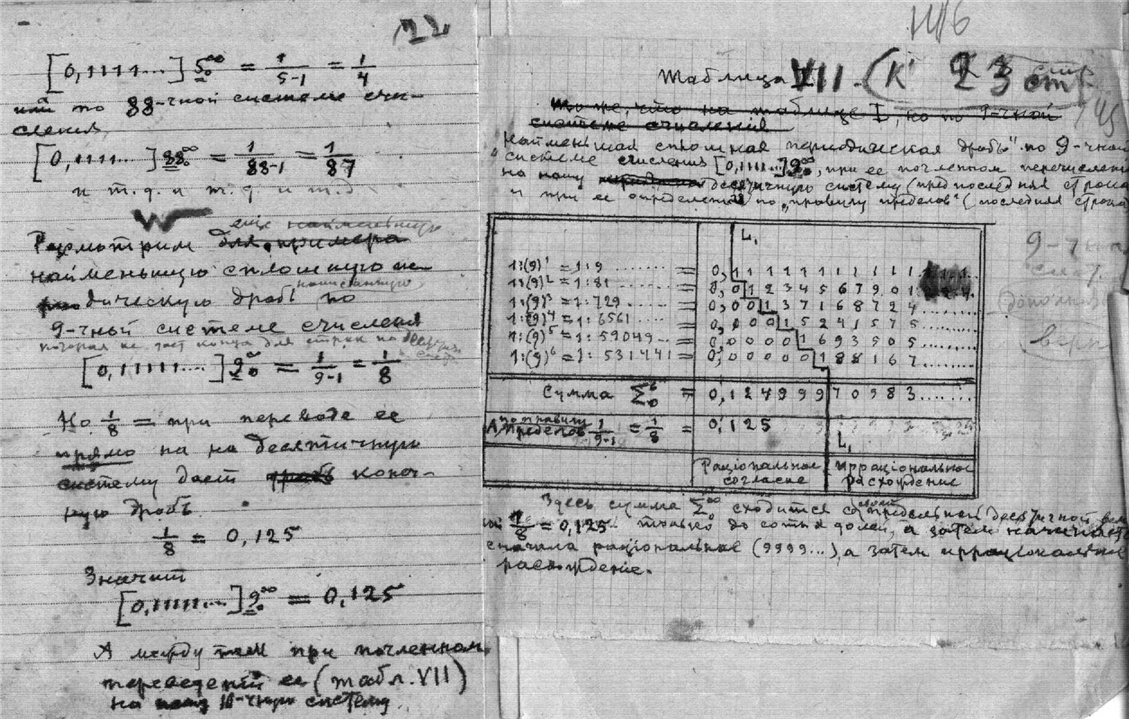 22
[0,1111...] 5₀^∞ = 1/5-1 = 1/4
или по 88-чной системе счи-
сления
[0,1111...] 88₀^∞ = 1/88-1 = 1/87
и т.д. и т.д и т.д.
еще наименьшую
Рассмотрим для примера
наименьшую сплошную пе-
риодическую дробь написанную по
9-чной системе счисления
которая не даст конца для строк по
[0,11111...] 9₀^∞ = 1/9-1 = 1/8
Но 1/8 = при переводе ее
прямо на на десятичную
систему дает дробь конеч-
ную дробь
1/8 = 0,125
Значит
[0,11111...] 9₀^∞ = 0,125
А между тем при почленном
переведении ее (табл. VII)
на нашу 10-чную систему
Таблица VII. (К 23 стр.
145
то же, что на таблице I, но по 9-чной
системе счисления
"Наименьшая сплошная периодическая дробь" по 9-чной
системе счисления [0,1111..]9₀^∞, при ее почленном перечислении
на нашу десятичную систему (предпоследняя строка
и при ее определении по „правилу пределов" (последняя строка
L₁
1:(9)¹ = 1:9 ....... = 0,1111111111
1:(9)² = 1:81 ....... = 0,01234567901
1:(9)³ = 1:729 ....... = 0,00137168724.......
1:(9)⁴ = 1:6561 ....... = 0,00015241575.......
1:(9)⁵ = 1:59049... = 0,00001693505.......
1:(9)⁶ = 1:531441 = 0,00000188167.......
Сумма ∑₀⁶ = 0,12499970983.....
А по правилу
пределов 1/9-1 = 1/8 = 0,125
L₁
Раціональное
согласие
Ирраціональное
расхождение
9-чная
сист.
Здесь сумма ∑₀^∞ сходится со своей предельной десятичной
1/8 = 0,125 только до сотых долей, а затем начинается
сначала раціональное (9999...), а затем ирраціональное
расхождение.